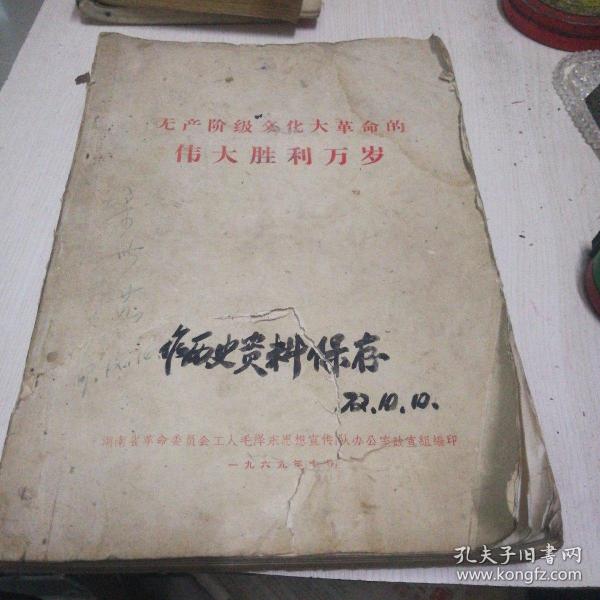 无产阶级文化大革命的
伟大胜利万岁
作历史资料保存
72.10.10.
湖南省革命委员会工人毛泽东思想宣传队办公室政宣组编印
一九六九年十
孔夫子旧書网
www.kongfz.com